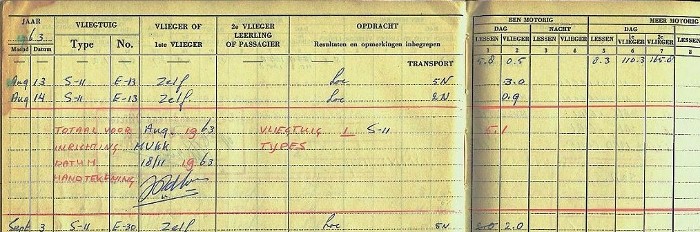 JAAR VLIEGTUIG VLIEGER OF 1ste VLIEGER 2e VLIEGER LEERLING OF PASSAGIER OPDRACHT EEN MOTORIG MEER MOTORIG
1963 DAG NACHT DAG
Maand Datum Type No. Resultaten en opmerkingen inbegrepen LESSEN VLIEGER LESSEN VLIEGER LESSEN 1e VLIEGER 2e VLIEGER LESSEN
1 2 3 4 5 6 7 8
TRANSPORT 5.0 0.5 8.3 110.3 165.0
Aug 13 S-11 E-13 Zelf Loc 5N 3.0
Aug 14 S-11 E-13 Zelf. Loc 2N 0.9
TOTAAL VOOR Aug. 1963 VLIEGTUIG 1 S-11 5.1
INRICHTING MVKK TYPES
DATUM 18/11 1963
HANDTEKENING
Sept 3 S-11 E-30 Zelf Loc 5N 5.0 2.0